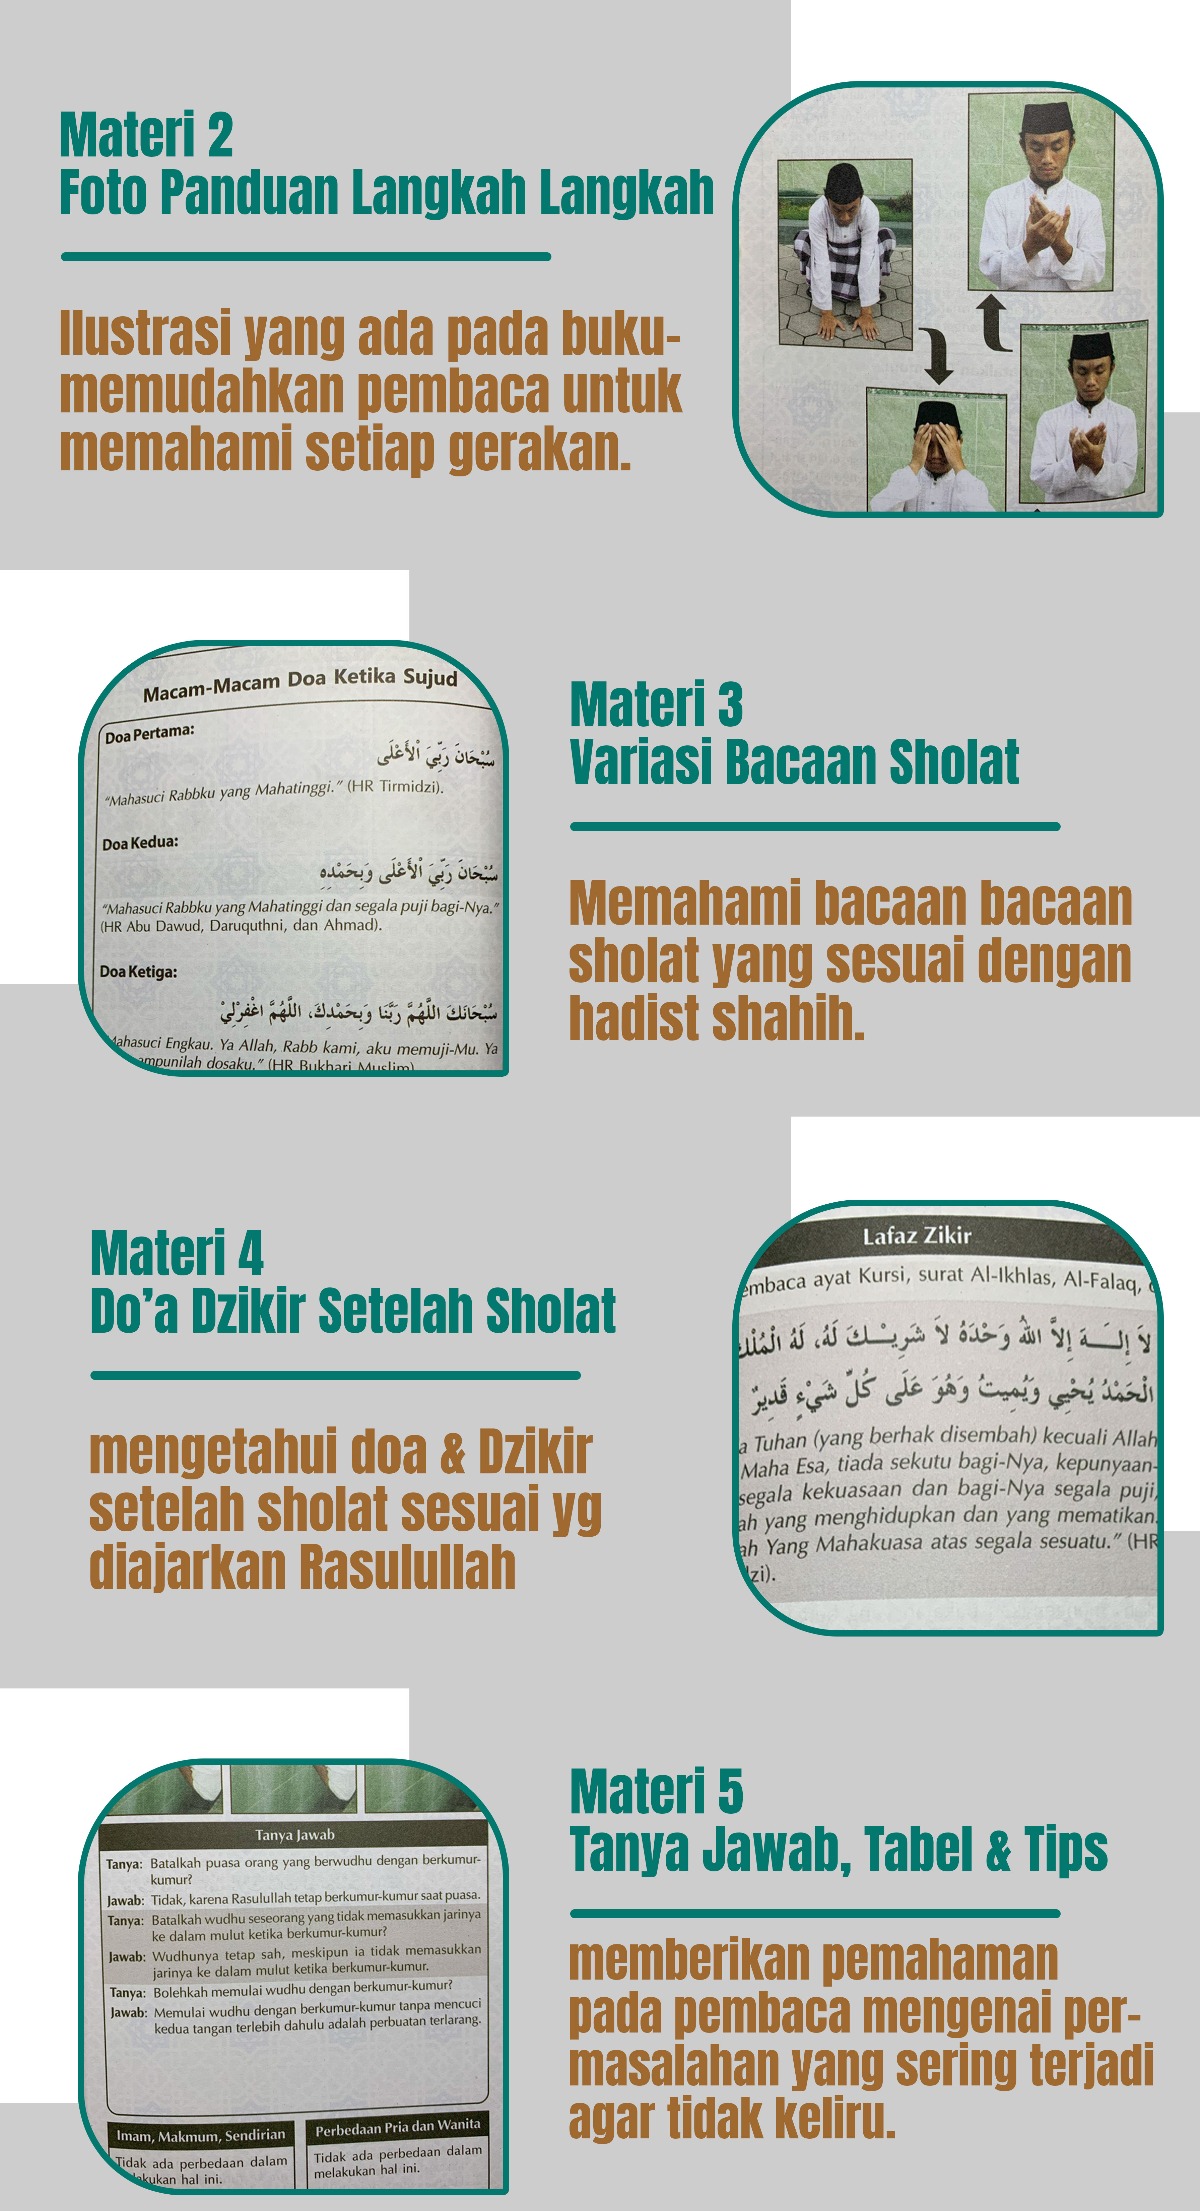 Materi 2
Foto Panduan Langkah Langkah
Ilustrasi yang ada pada buku-
memudahkan pembaca untuk
memahami setiap gerakan.
Macam-Macam Doa Ketika Sujud
Doa Pertama:
سُبْحَانَ رَبِّيَ الْأَعْلَى
“Mahasuci Rabbku yang Mahatinggi.” (HR Tirmidzi).
Doa Kedua:
سُبْحَانَ رَبِّيَ الْأَعْلَى وَبِحَمْدِهِ
“Mahasuci Rabbku yang Mahatinggi dan segala puji bagi-Nya.”
(HR Abu Dawud, Daruquthni, dan Ahmad).
Doa Ketiga:
سُبْحَانَكَ اللَّهُمَّ رَبَّنَا وَبِحَمْدِكَ، اللَّهُمَّ اغْفِرْلِيْ
Mahasuci Engkau. Ya Allah, Rabb kami, aku memuji-Mu. Ya
ampunilah dosaku.” (HR Bukhari Muslim)
Materi 3
Variasi Bacaan Sholat
Memahami bacaan bacaan
sholat yang sesuai dengan
hadist shahih.
Materi 4
Do’a Dzikir Setelah Sholat
mengetahui doa & Dzikir
setelah sholat sesuai yg
diajarkan Rasulullah
Lafaz Zikir
embaca ayat Kursi, surat Al-Ikhlas, Al-Falaq,
لاَ إِلَــهَ إِلاَّ اللهُ وَحْدَهُ لاَ شَرِيْــكَ لَهُ، لَهُ الْمُلْكُ
الْحَمْدُ يُحْيِي وَيُمِيتُ وَهُوَ عَلَى كُلِّ شَيْءٍ قَدِيرٌ
a Tuhan (yang berhak disembah) kecuali Allah
Maha Esa, tiada sekutu bagi-Nya, kepunyaan-
segala kekuasaan dan bagi-Nya segala puji,
ah yang menghidupkan dan yang mematikan.
ah Yang Mahakuasa atas segala sesuatu.” (HR
zi).
Tanya Jawab
Tanya: Batalkah puasa orang yang berwudhu dengan berkumur-
kumur?
Jawab: Tidak, karena Rasulullah tetap berkumur-kumur saat puasa.
Tanya: Batalkah wudhu seseorang yang tidak memasukkan jarinya
ke dalam mulut ketika berkumur-kumur?
Jawab: Wudhunya tetap sah, meskipun ia tidak memasukkan
jarinya ke dalam mulut ketika berkumur-kumur.
Tanya: Bolehkah memulai wudhu dengan berkumur-kumur?
Jawab: Memulai wudhu dengan berkumur-kumur tanpa mencuci
kedua tangan terlebih dahulu adalah perbuatan terlarang.
Imam, Makmum, Sendirian
Tidak ada perbedaan dalam
lakukan hal ini.
Perbedaan Pria dan Wanita
Tidak ada perbedaan dalam
melakukan hal ini.
Materi 5
Tanya Jawab, Tabel & Tips
memberikan pemahaman
pada pembaca mengenai per-
masalahan yang sering terjadi
agar tidak keliru.